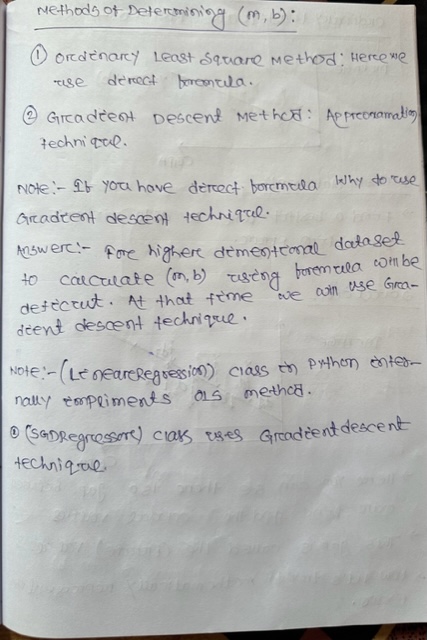 Methods of Determining (m, b):
① Ordinary Least Square Method: Here we
use direct formula.
② Gradient Descent Method: Approximation
technique.
Note:- If you have direct formula why to use
Gradient descent technique.
Answer:- For higher dimentional dataset
to calculate (m, b) using formula will be
deficut. At that time we will use Gra-
dient descent technique.
Note:- (LinearRegression) class in Python inter-
nally impliments OLS method.
① (SGDRegressor) class uses Gradient descent
technique